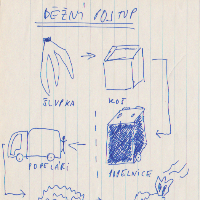 BĚŽNÝ POSTUP
ŠLUPKA
KOŠ
POPELÁŘI
POPELNICE